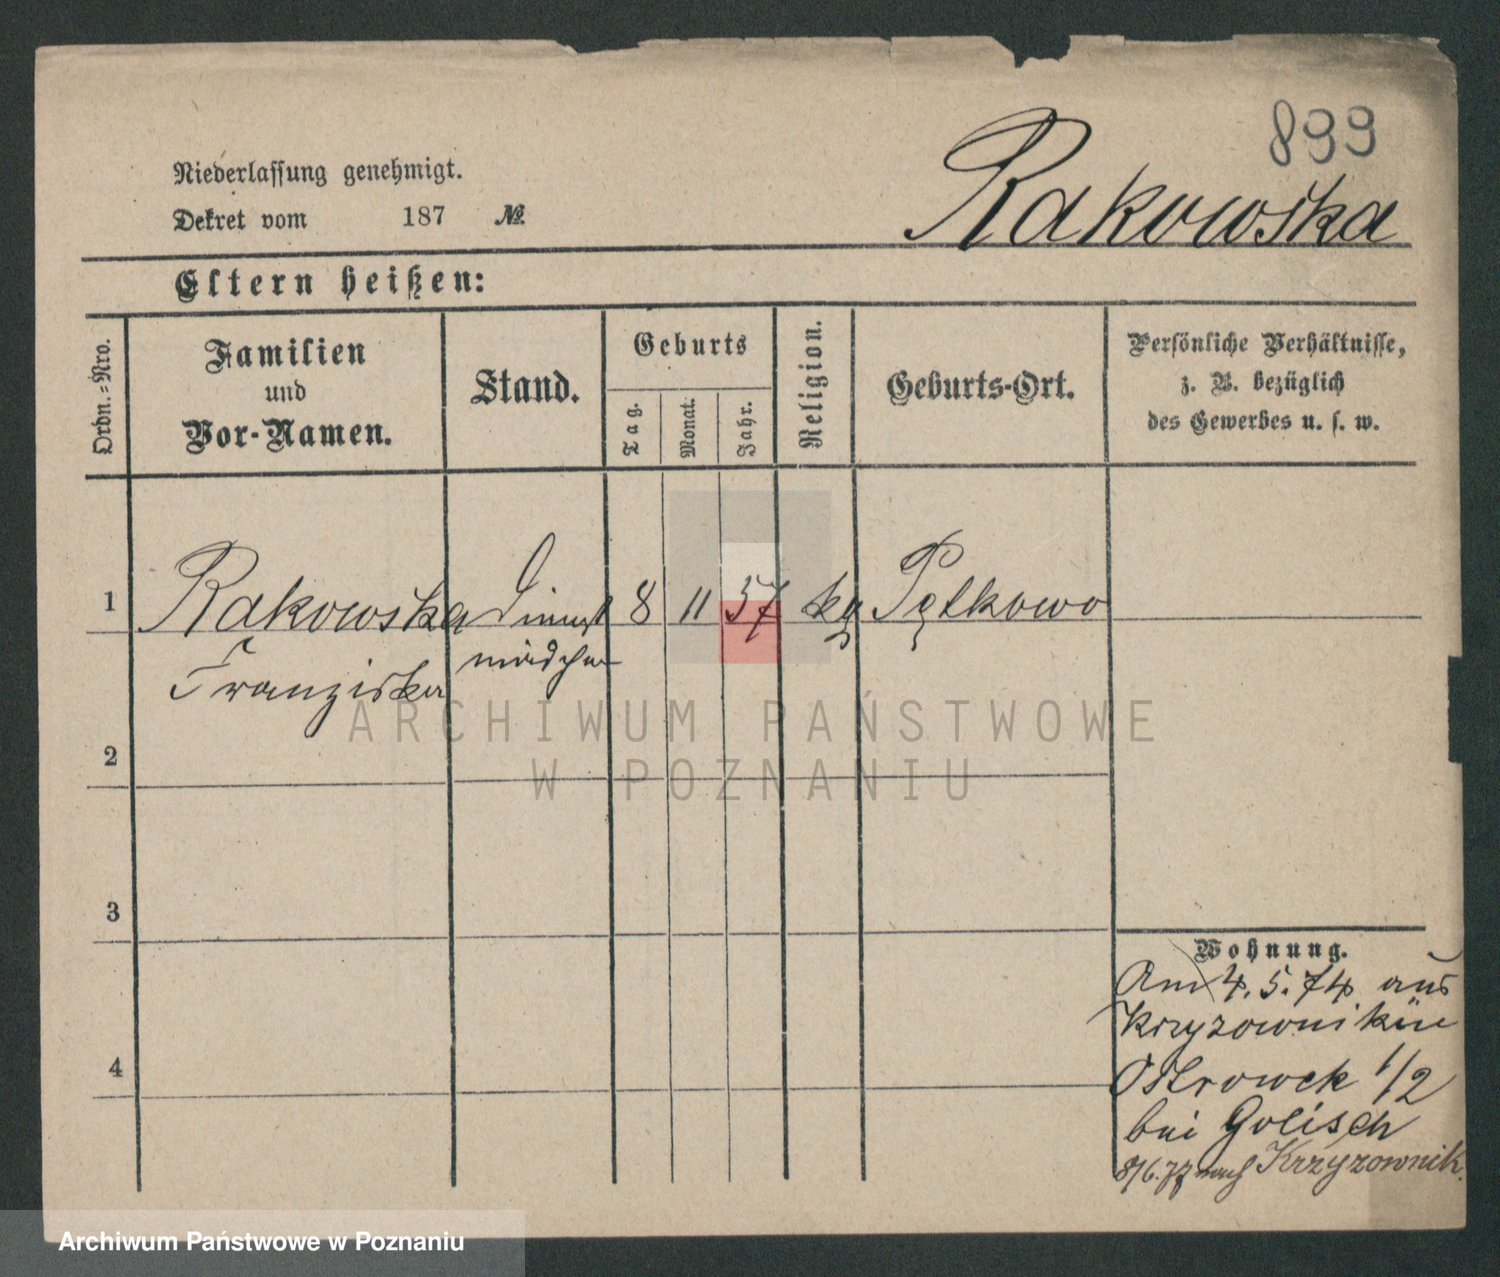 899
Niederlassung genehmigt.
Dekret vom 187 №
Rakowska
Eltern heißen:
Ordn.-Nro.
Familien und Vor-Namen.
Stand.
Geburts
Tag.
Monat.
Jahr.
Religion.
Geburts-Ort.
Persönliche Verhältnisse,
z. B. bezüglich
des Gewerbes u. s. w.
1 Rakowska Dienst 8 11 57 kg Pętkowo
Franziska mädchen
ARCHIWUM PAŃSTWOWE
W POZNANIU
2
3
4
Wohnung.
Am 4. 5. 74 aus
Ostrowek 1/2
bei Golisch
8/6.77 nach Krzyzownik.
Archiwum Państwowe w Poznaniu